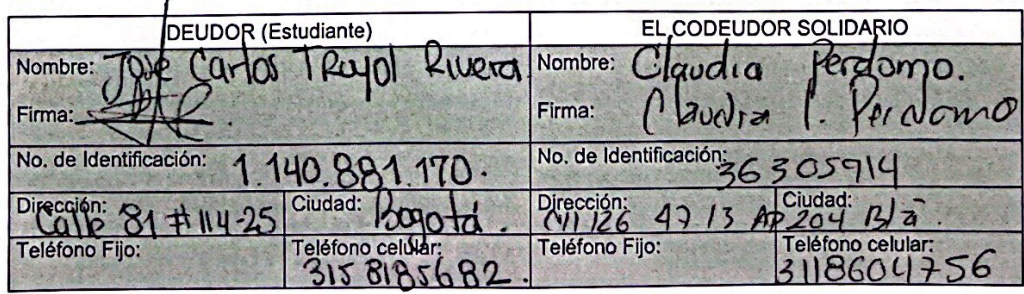 DEUDOR (Estudiante) EL CODEUDOR SOLIDARIO
Nombre: Jose Carlos Troyol Rivera Nombre: Claudia Perdomo.
Firma: Firma: Claudia C. Perdomo
No. de Identificación: 1.140.881.170. No. de Identificación: 36305914
Dirección: Calle 81 # 114-25 Ciudad: Bogotá. Dirección: Cll 126 47 13 AP 204 Ciudad: B/a
Teléfono Fijo: Teléfono celular: 3158185682. Teléfono Fijo: Teléfono celular: 3118604756